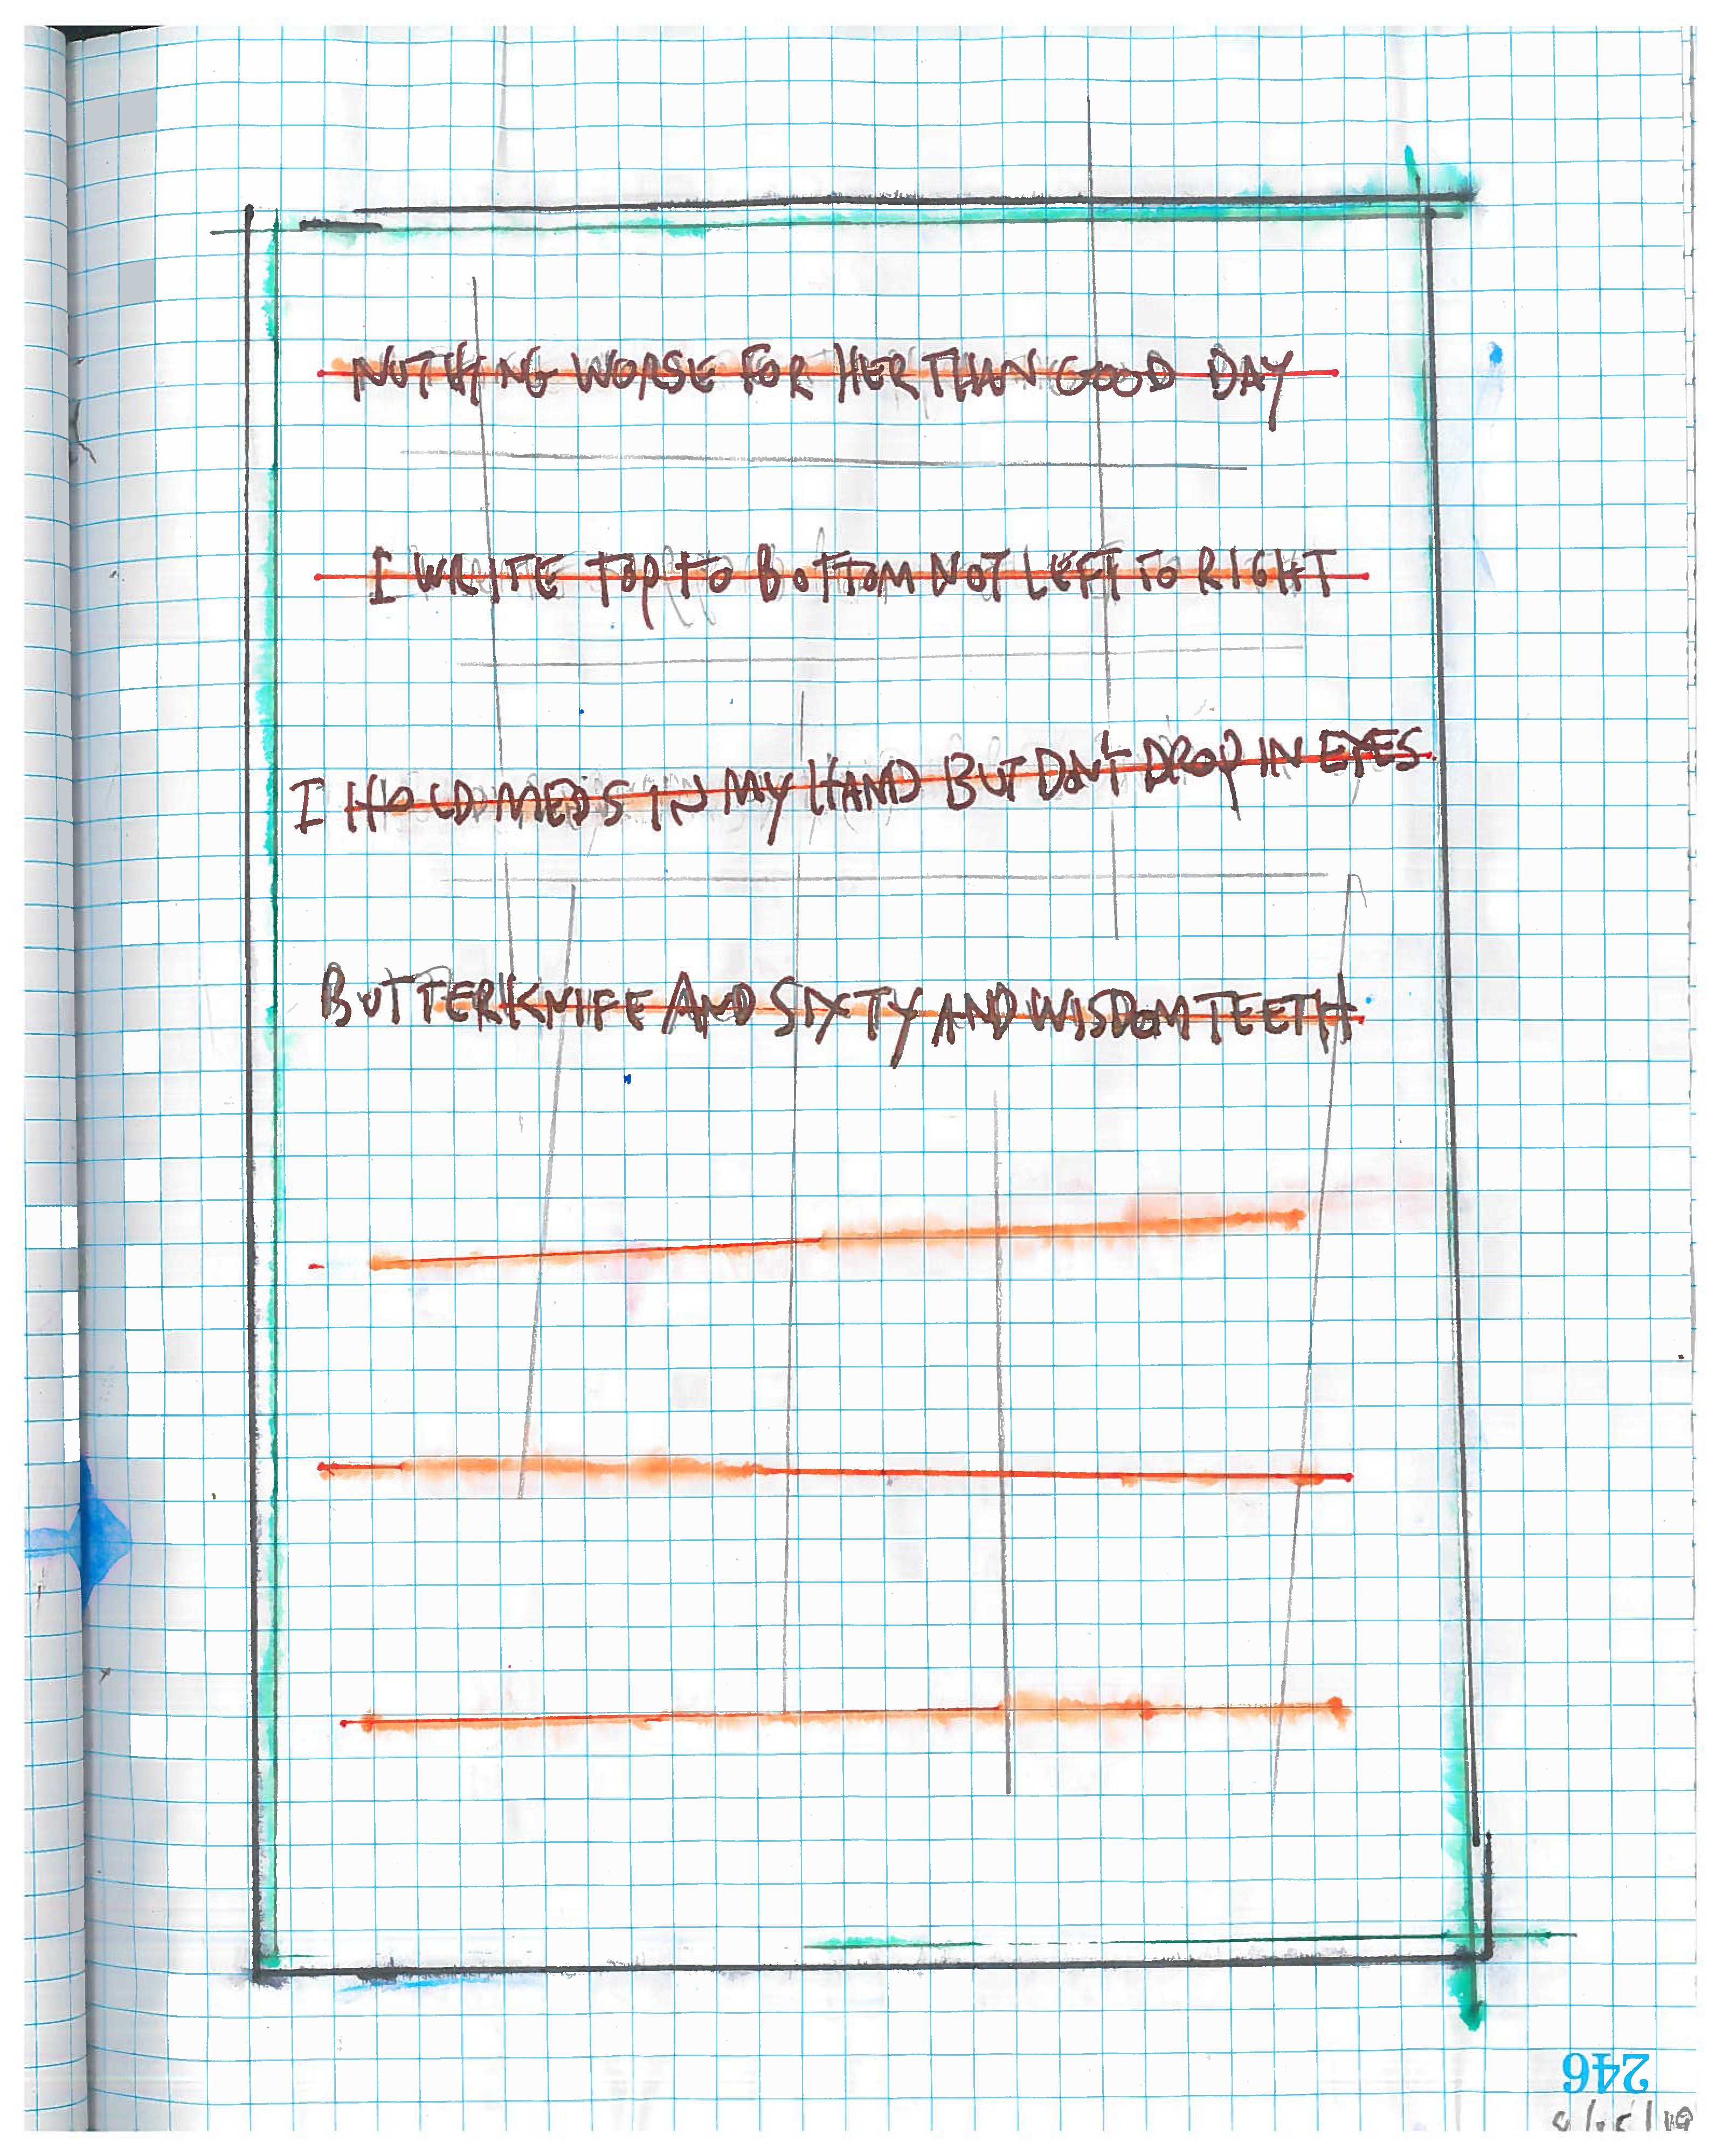 NOTHING WORSE FOR HER THAN GOOD DAY
I WRITE TOP TO BOTTOM NOT LEFT TO RIGHT
I HOLD MEDS IN MY HAND BUT DON'T DROP IN EYES
BUTTERKNIFE AND SIXTY AND WISDOM TEETH
246